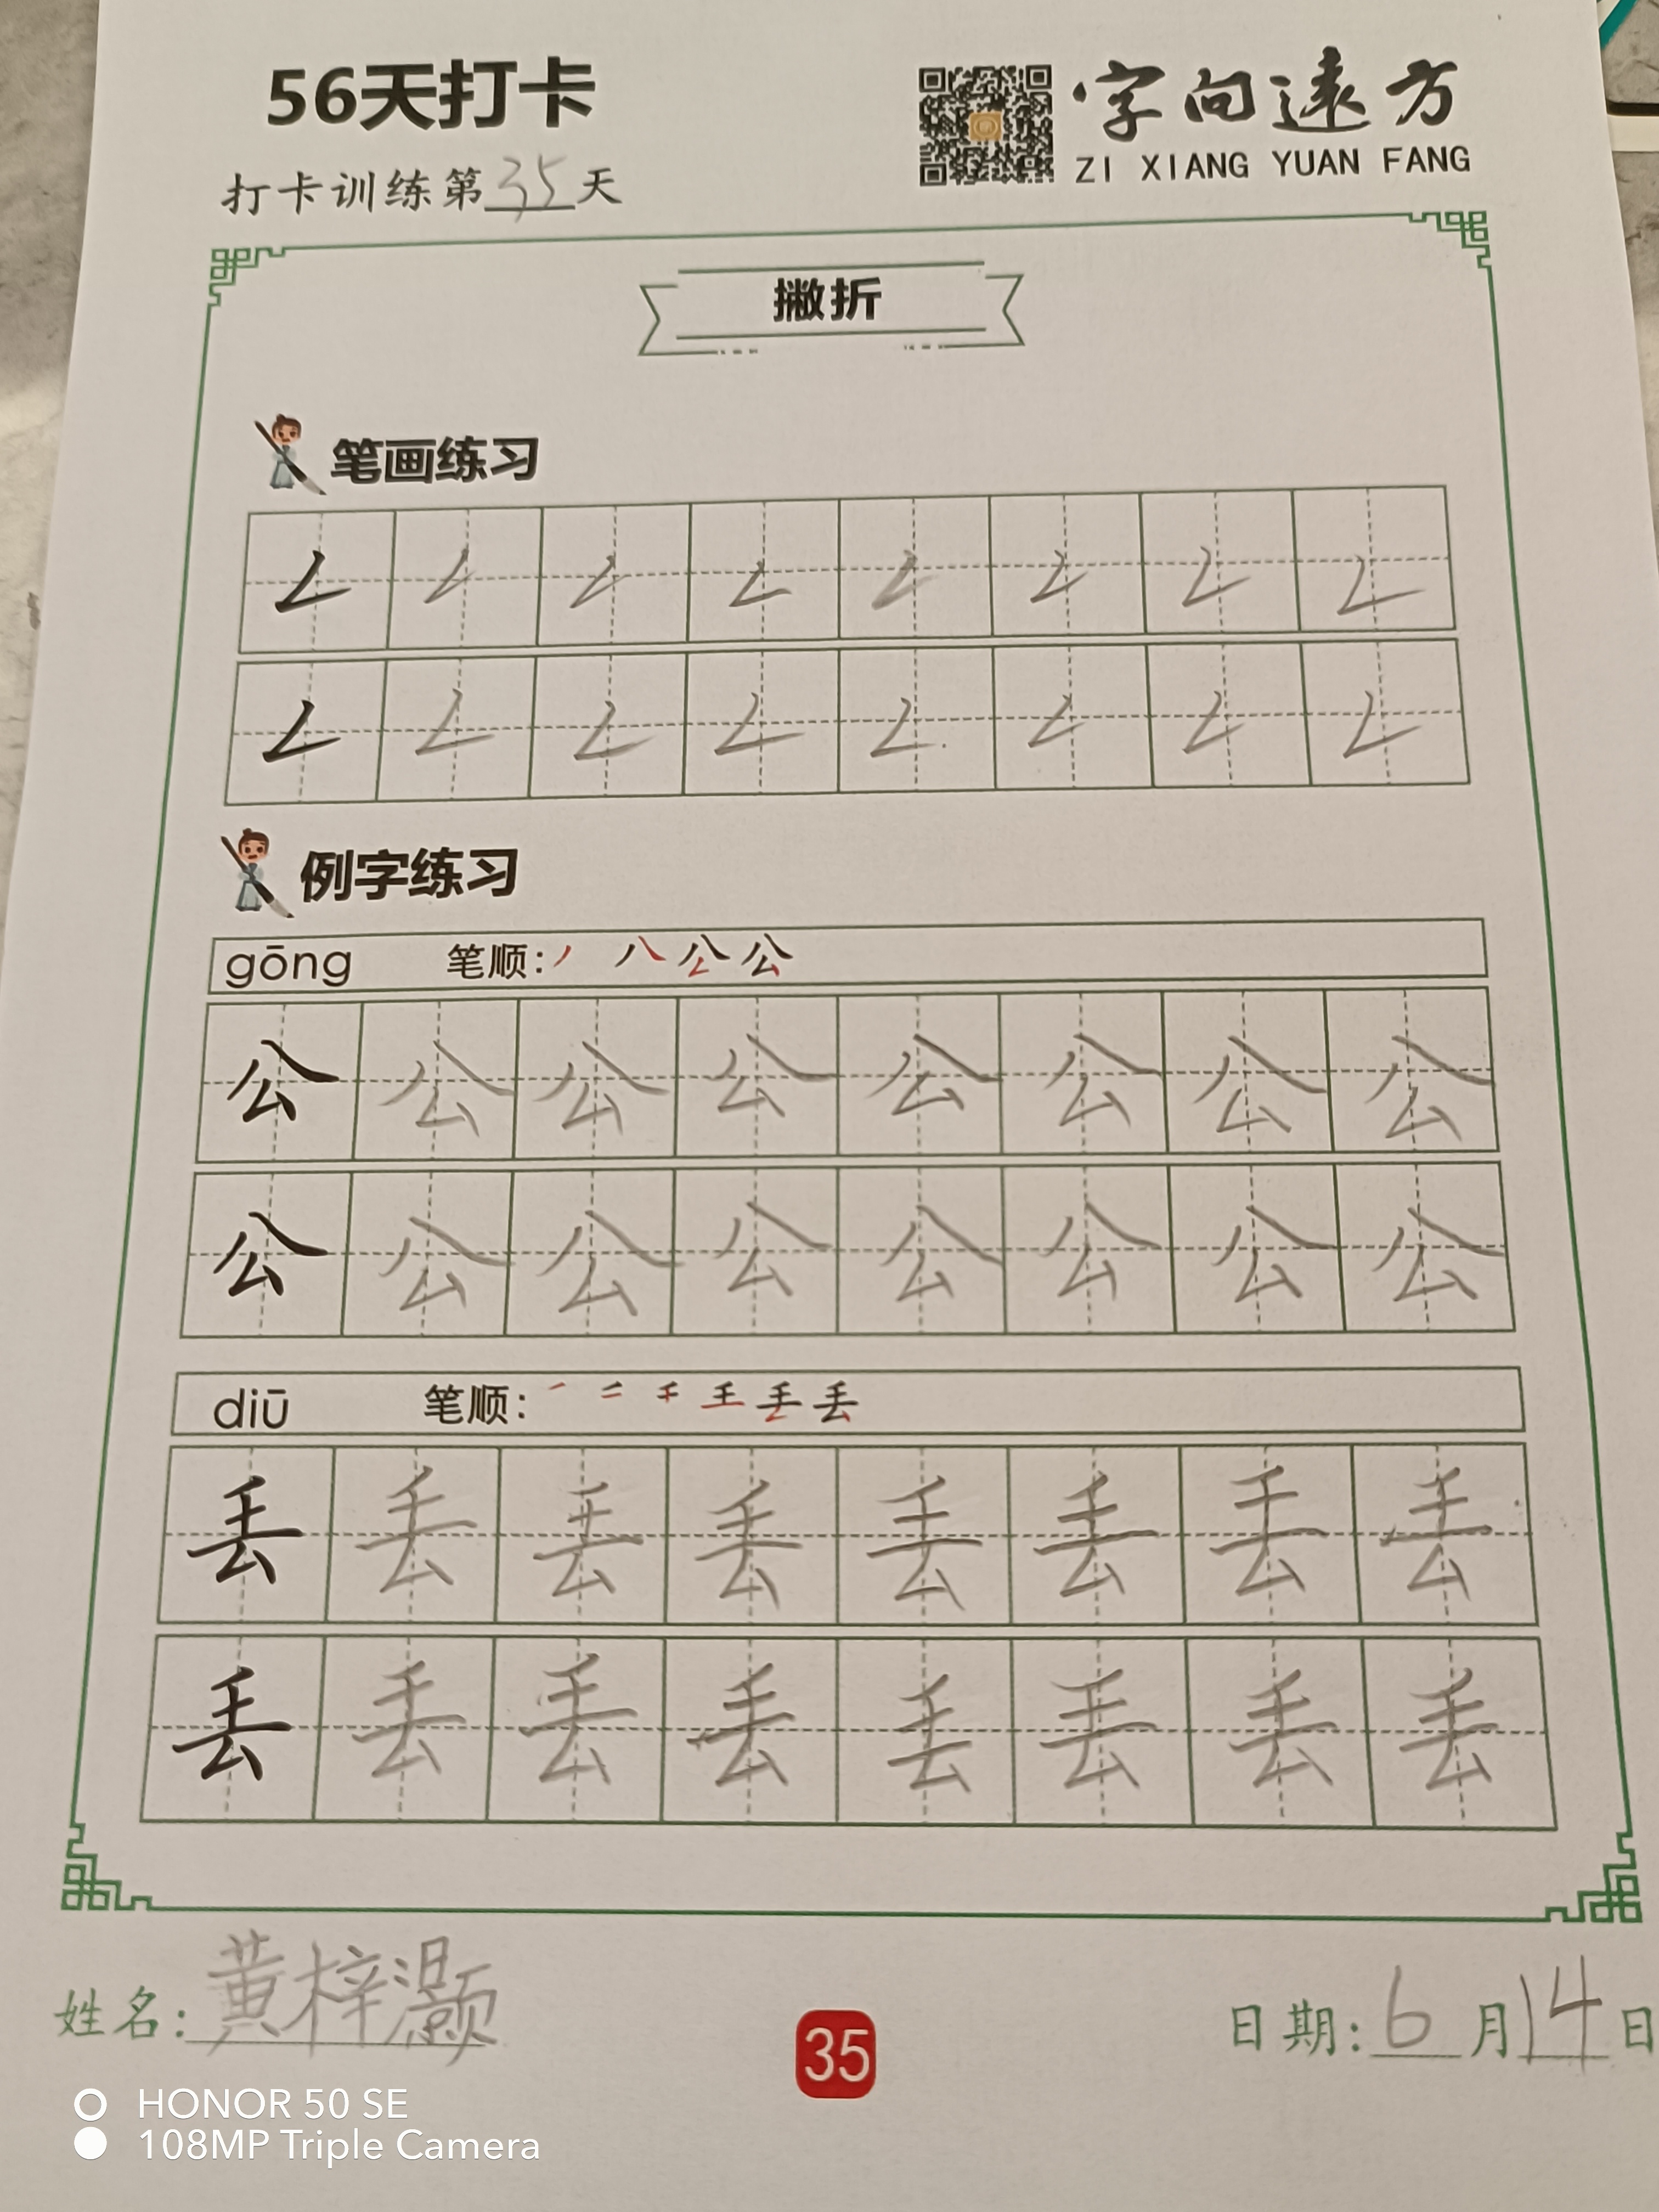 56天打卡
字向遠方
ZI XIANG YUAN FANG
打卡训练第35天
撇折
笔画练习
例字练习
gōng 笔顺: 丿 八 公 公
公 公 公 公 公 公 公 公
公 公 公 公 公 公 公 公
diū 笔顺: 丢 丢
丢 丢 丢 丢 丢 丢 丢 丢
丢 丢 丢 丢 丢 丢 丢 丢
姓名: 黄梓灏
35
日期: 6月14日
HONOR 50 SE
108MP Triple Camera